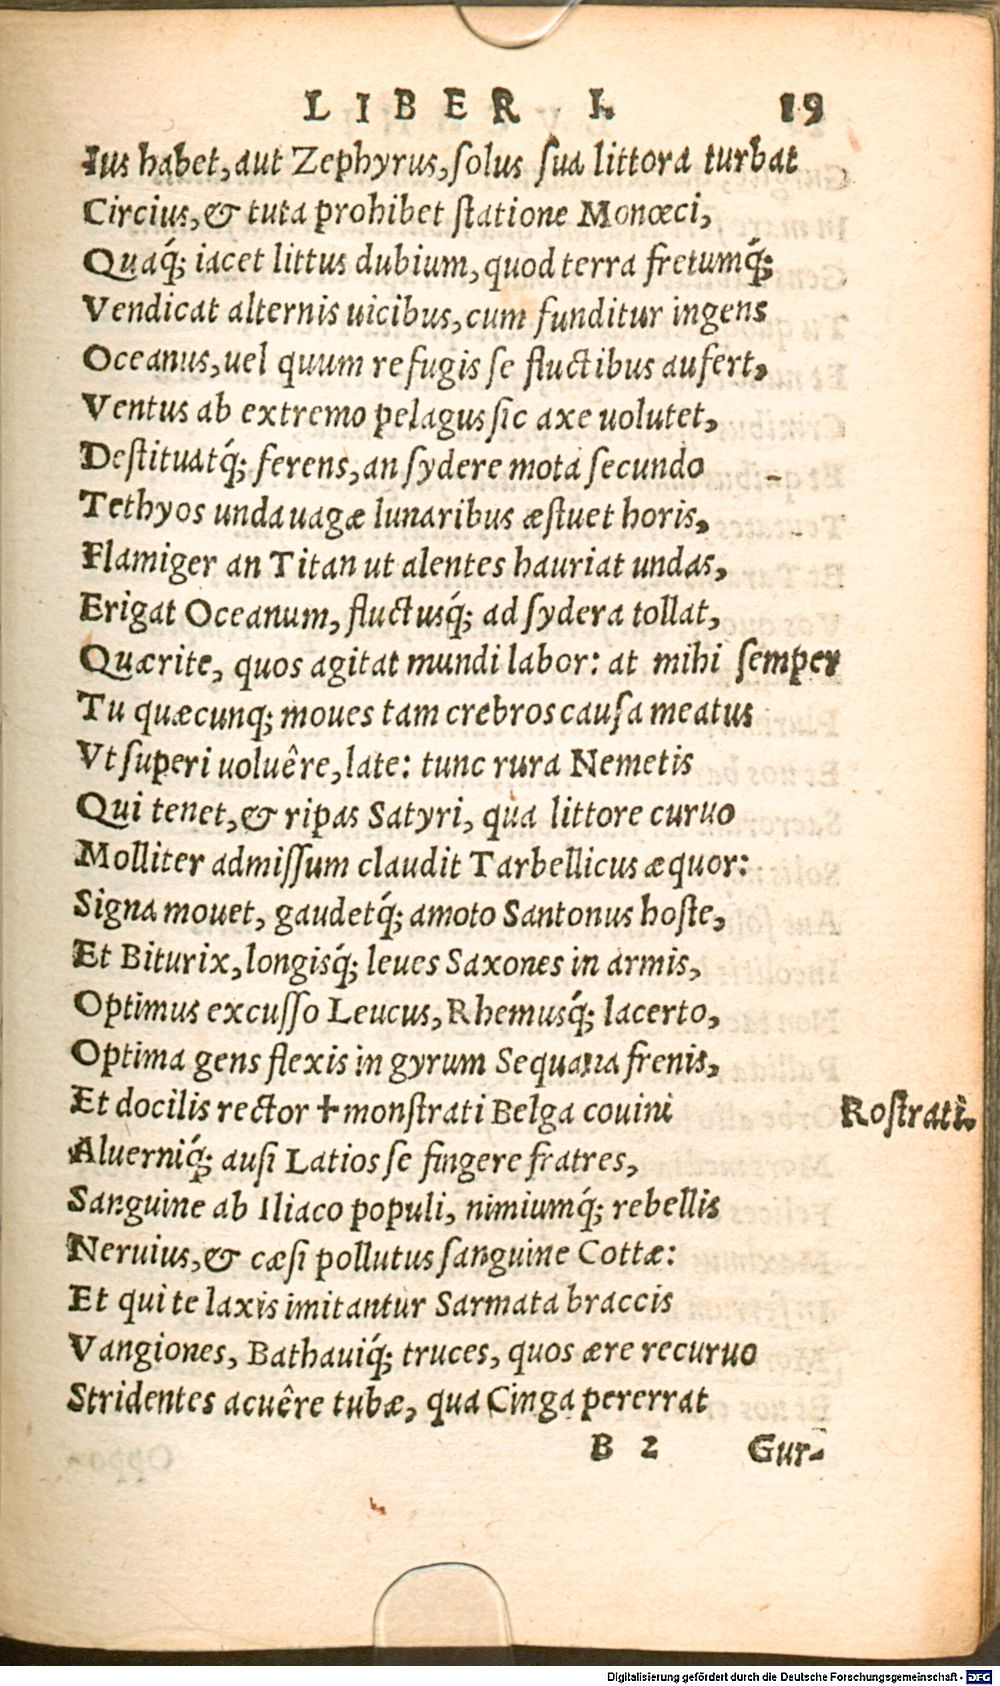 LIBER I. 19
Ius habet, aut Zephyrus, ſolus ſua littora turbat
Circius, & tuta prohibet ſtatione Monœci,
Quaq́; iacet littus dubium, quod terra fretumq́;
Vendicat alternis uicibus, cum funditur ingens
Oceanus, uel quum refugis ſe fluctibus aufert,
Ventus ab extremo pelagus ſic axe uolutet,
Deſtituatq́; ferens, an ſydere mota ſecundo
Tethyos unda uagæ lunaribus æſtuet horis,
Flamiger an Titan ut alentes hauriat undas,
Erigat Oceanum, fluctusq́; ad ſydera tollat,
Quærite, quos agitat mundi labor: at mihi ſemper
Tu quæcunq; moues tam crebros cauſa meatus
Vt ſuperi uoluêre, late: tunc rura Nemetis
Qui tenet, & ripas Satyri, qua littore curuo
Molliter admiſſum claudit Tarbellicus æquor:
Signa mouet, gaudetq́; amoto Santonus hoſte,
Et Biturix, longisq́; leues Saxones in armis,
Optimus excuſſo Leucus, Rhemusq́; lacerto,
Optima gens flexis in gyrum Sequana frenis,
Et docilis rector ✝monſtrati Belga couini Roſtrati.
Aluerniq́; auſi Latios ſe fingere fratres,
Sanguine ab Iliaco populi, nimiumq́; rebellis
Neruius, & cæſi pollutus ſanguine Cottæ:
Et qui te laxis imitantur Sarmata braccis
Vangiones, Bathauiq́; truces, quos ære recuruo
Stridentes acuêre tubæ, qua Cinga pererrat
B 2 Gur-
Digitalisierung gefördert durch die Deutsche Forschungsgemeinschaft - DFG